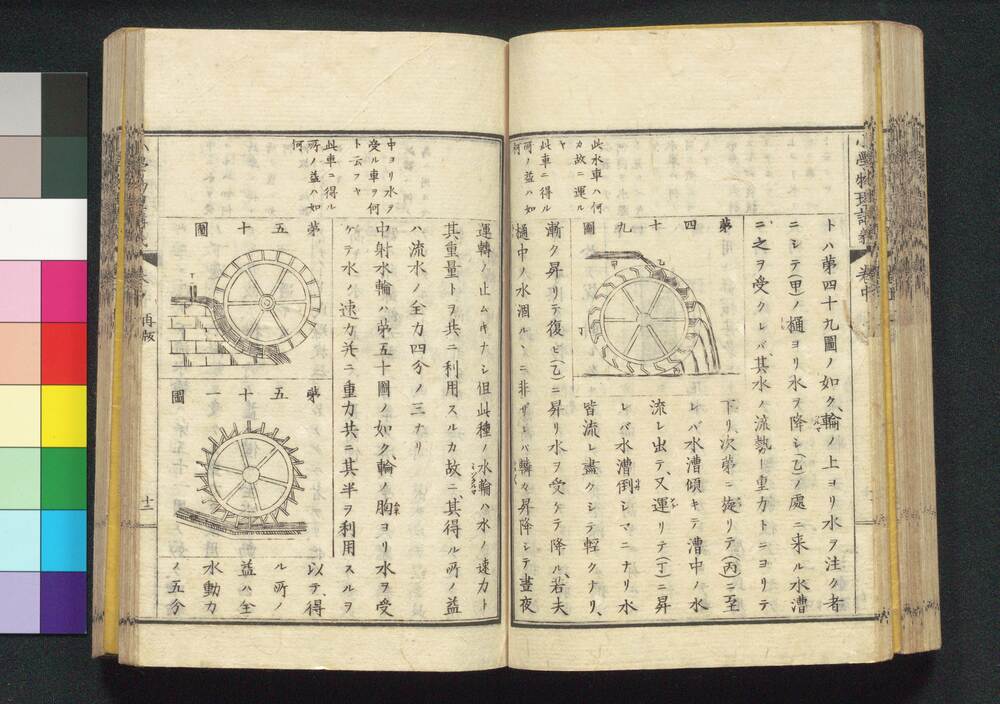 小學物理講義
卷中
此水車ハ何
カ故ニ運ル
ヤ
此車ニ得ル
所ノ益ハ如
何
トハ第四十九圖ノ如ク、輪ノ上ヨリ水ヲ注ク者
ニシテ(甲)ノ樋ヨリ水ヲ降シ(乙)ノ處ニ来ル水漕
ニ之ヲ受クレバ、其水ノ流勢ト重力トニヨリテ
第
四
十
九
圖
甲
乙
丁
下リ、次第ニ旋リテ(丙)ニ至
レバ水漕傾キテ漕中ノ水
流レ出テ、又運リテ(丁)ニ昇
レバ水漕倒シマニナリ水
皆流レ盡クシテ輕クナリ、
漸ク昇リテ復ビ(乙)ニ昇リ水ヲ受ケテ降ル、若夫
樋中ノ水涸ルヽニ非ザレバ轉々昇降シテ晝夜
中ヨリ水ヲ
受ル車ヲ何
ト云フヤ
此車ニ得ル
所ノ益ハ如
何
運轉ノ止ムヿナシ但此種ノ水輪ハ水ノ速力ト
其重量トヲ共ニ利用スルカ故ニ、其得ル所ノ益
ハ流水ノ全力四分ノ三ナリ
中射水輪ハ第五十圖ノ如ク、輪ノ胸ヨリ水ヲ受
ケテ水ノ速力并ニ重力共ニ其半ヲ利用スルヲ
第
五
十
圖
第
五
十
一
圖
以テ、得
ル所ノ
益ハ全
水動力
ノ五分
再板
十二